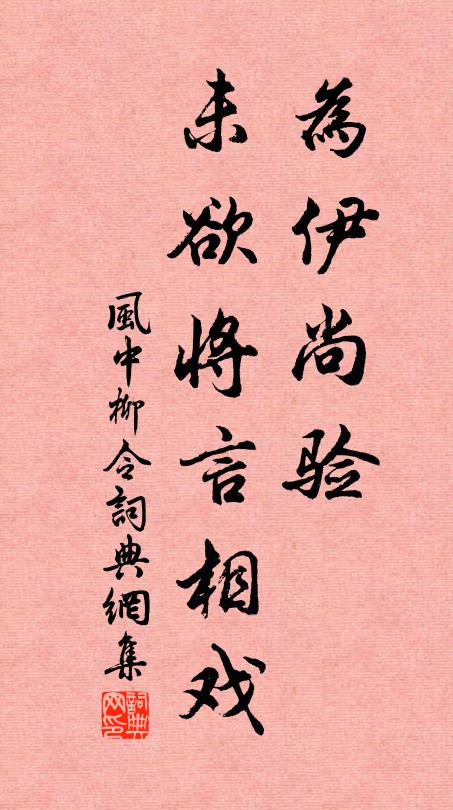 為伊尚验
未欲將言相戏
風中柳令詞典網集
詞典网印